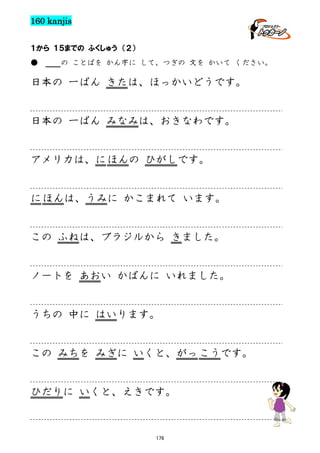 160 kanjis
プロジェクト
1から 15までの ふくしゅう (2)
● ___の ことばを かん字に して、つぎの 文を かいて ください。
日本の 一ばん きたは、ほっかいどうです。
日本の 一ばん みなみは、おきなわです。
アメリカは、にほんの ひがしです。
にほんは、うみに かこまれて います。
この ふねは、ブラジルから きました。
ノートを あおい かばんに いれました。
うちの 中に はいります。
この みちを みぎに いくと、がっこうです。
ひだりに いくと、えきです。
176